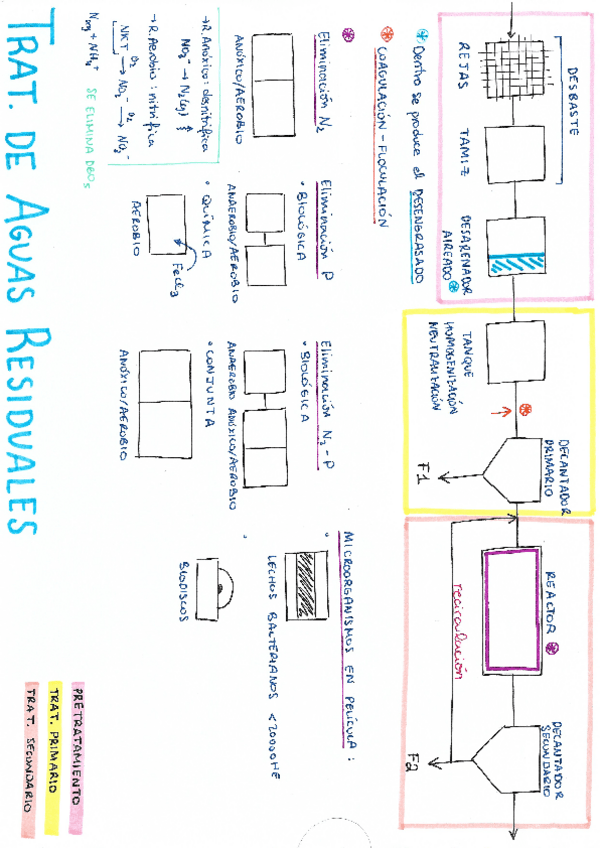 TRAT. DE AGUAS RESIDUALES
PRETRATAMIENTO
TRAT. PRIMARIO
TRAT. SECUNDARIO
DESBASTE
REJAS
TAMIZ
DESARENADOR
AIREADO
TANQUE
HOMOGENIZACIÓN
NEUTRALIZACIÓN
DECANTADOR
PRIMARIO
F1
REACTOR
recirculación
DECANTADOR
SECUNDARIO
F2
Dentro se produce el DESENGRASADO
COAGULACIÓN - FLOCULACIÓN
Eliminación N₂
ANÓXICO/AEROBIO
→R. Anóxico: desnitrifica
NO₃⁻ → N₂(g) ↑
→R. Aerobio: nitrifica
NKT →O₂ NO₂⁻ →O₂ NO₃⁻
Norg + NH₄⁺
SE ELIMINA DBO₅
Eliminación P
• BIOLÓGICA
ANAEROBIO/AEROBIO
• QUÍMICA
FeCl₃
AEROBIO
Eliminación N₂ - P
• BIOLÓGICA
ANAEROBIO ANÓXICO/AEROBIO
• CONJUNTA
ANÓXICO/AEROBIO
MICROORGANISMOS EN PELÍCULA:
LECHOS BACTERIANOS <2000HE
BIODISCOS